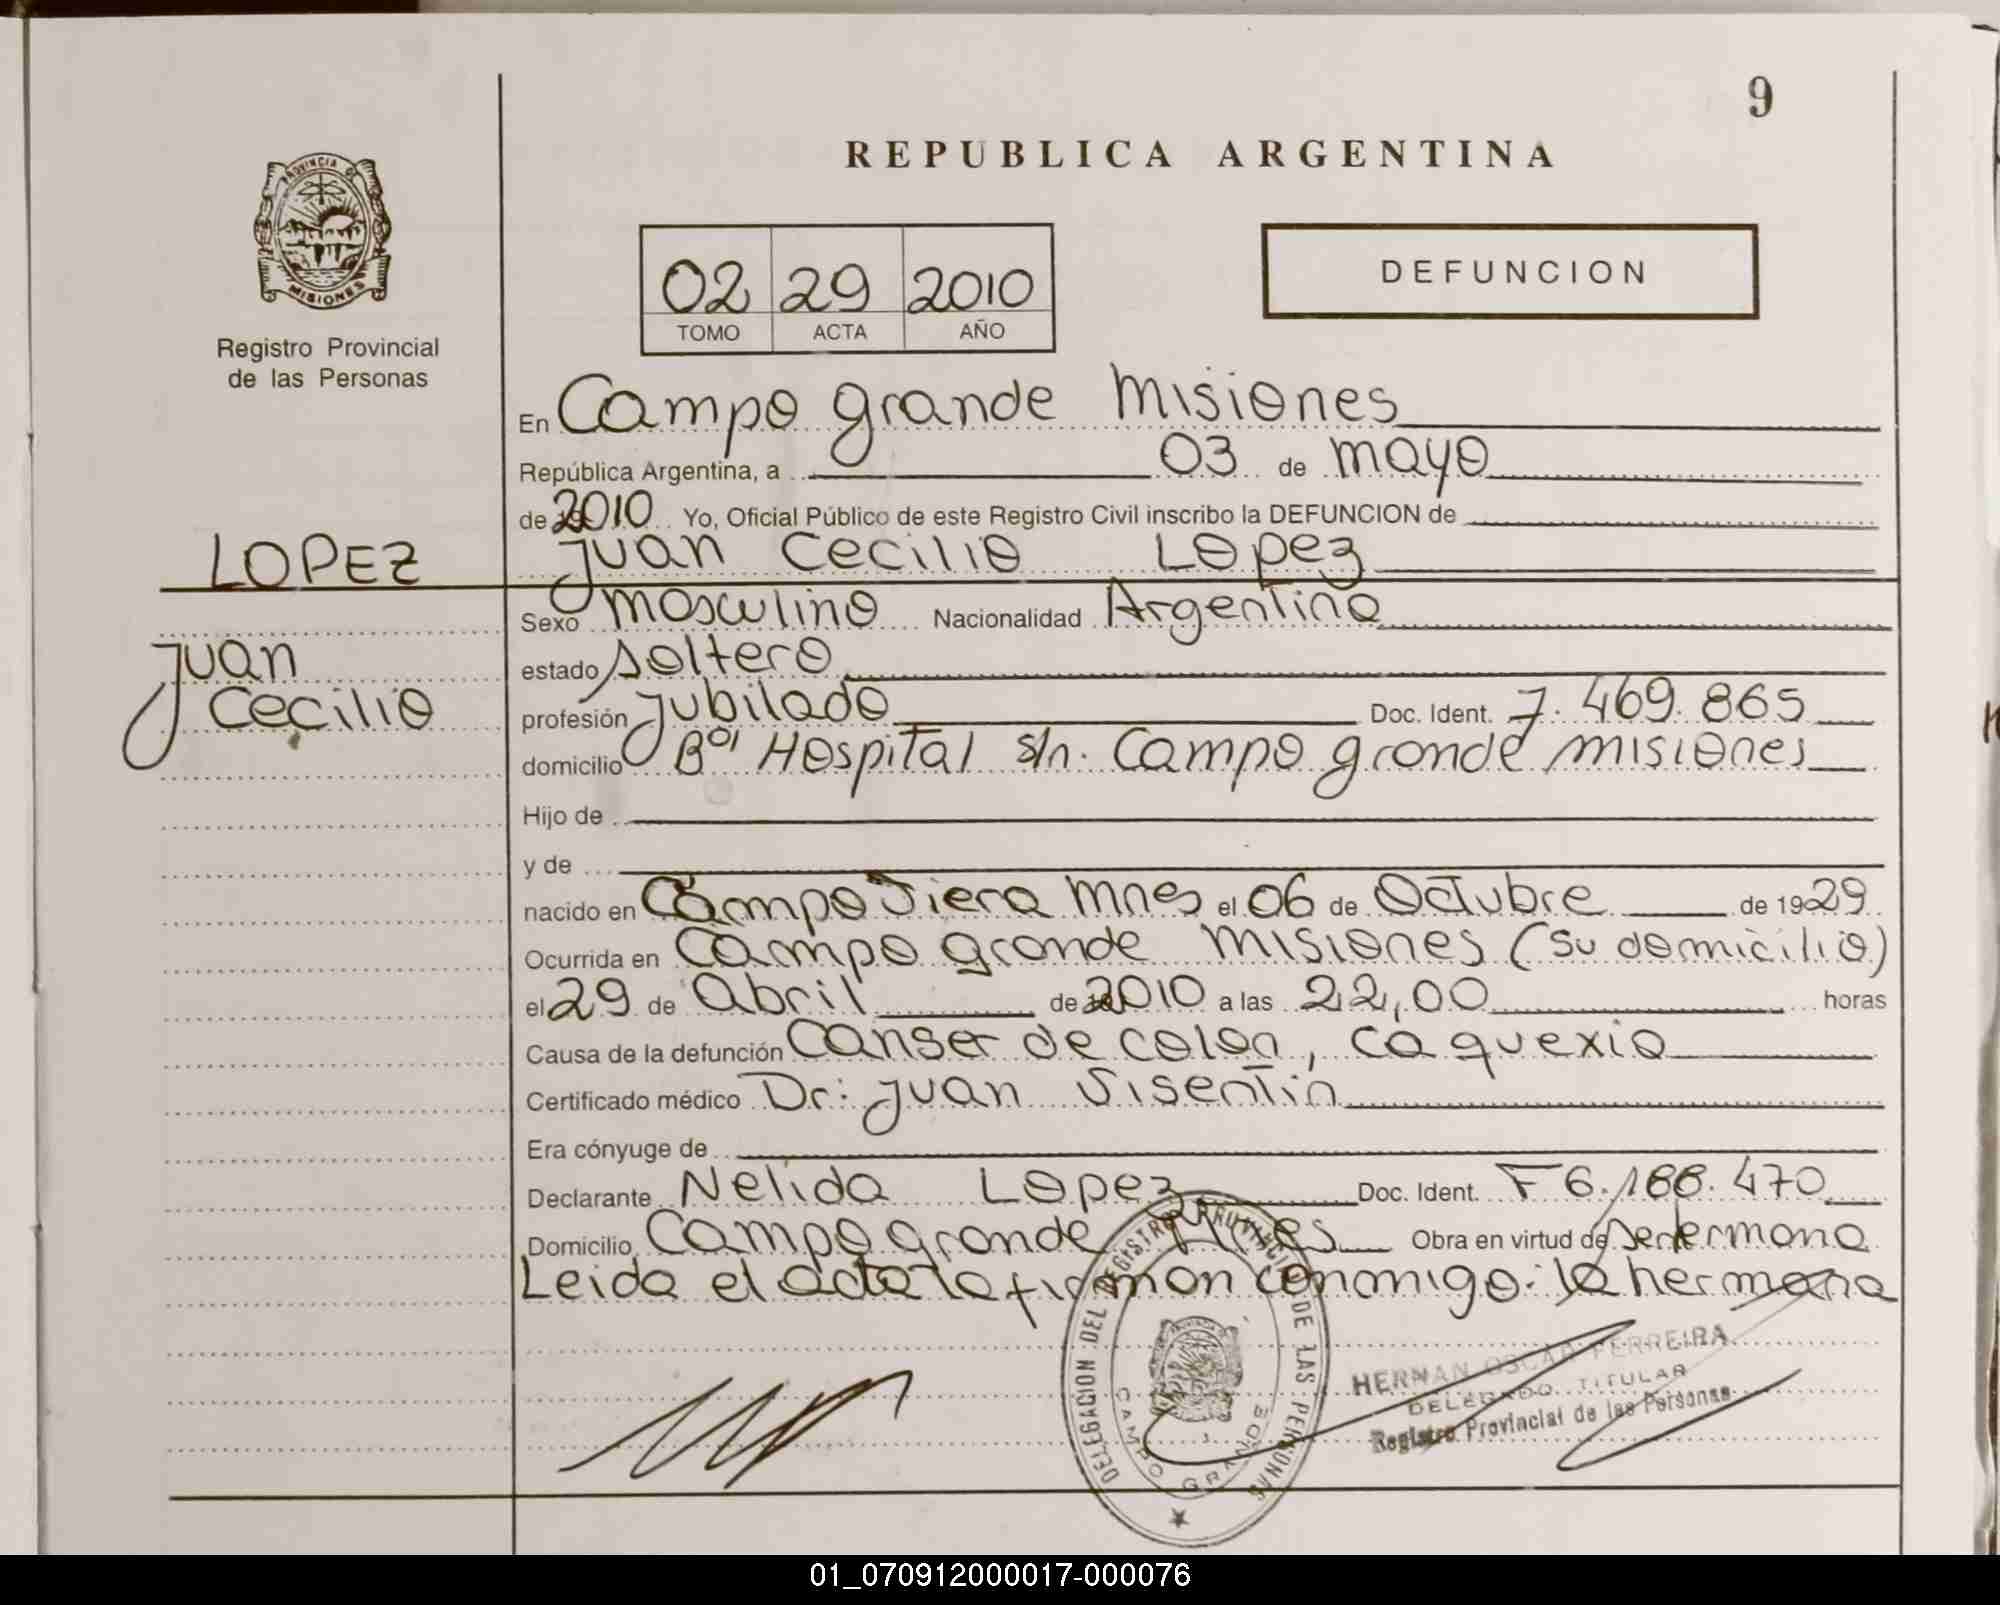 9
REPUBLICA ARGENTINA
PROVINCIA DE
MISIONES
Registro Provincial
de las Personas
02 29 2010
TOMO ACTA AÑO
DEFUNCION
En Campo grande Misiones
República Argentina, a 03 de mayo
de 2010 Yo, Oficial Público de este Registro Civil inscribo la DEFUNCION de
LOPEZ
Juan Cecilio
Juan Cecilio Lopez
Sexo masculino Nacionalidad Argentino
estado soltero
profesión Jubilado Doc. Ident. 7.469.865
domicilio Bº Hospital s/n. Campo grande misiones
Hijo de
y de
nacido en Campo Viera Mnes el 06 de Octubre de 1929
Ocurrida en Campo grande misiones (su domicilio)
el 29 de Abril de 2010 a las 22,00 horas
Causa de la defunción Canser de colon, caquexia
Certificado médico Dr: Juan Visentin
Era cónyuge de
Declarante Nelida Lopez Doc. Ident. F 6.188.470
Domicilio Campo grande Mnes Obra en virtud de ser hermana
Leida el acta la firman conmigo: la hermana
DELEGACION DEL REGISTRO PROVINCIAL DE LAS PERSONAS
CAMPO GRANDE
HERNAN OSCAR FERREIRA
DELEGADO TITULAR
Registro Provincial de las Personas
01_070912000017-000076